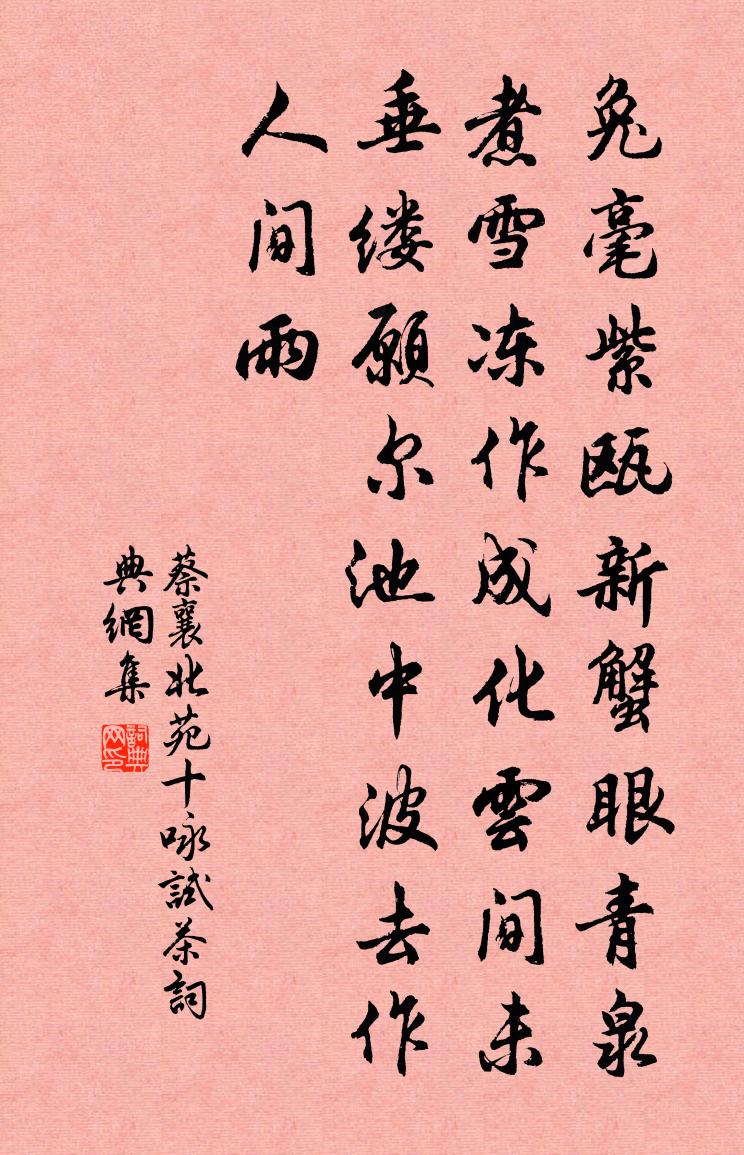 兔毫紫瓯新蟹眼青泉
煮雪冻作成化雲间未
垂缕願尔池中波去作
人间雨
蔡襄北苑十咏試茶詞
典網集
詞典网印